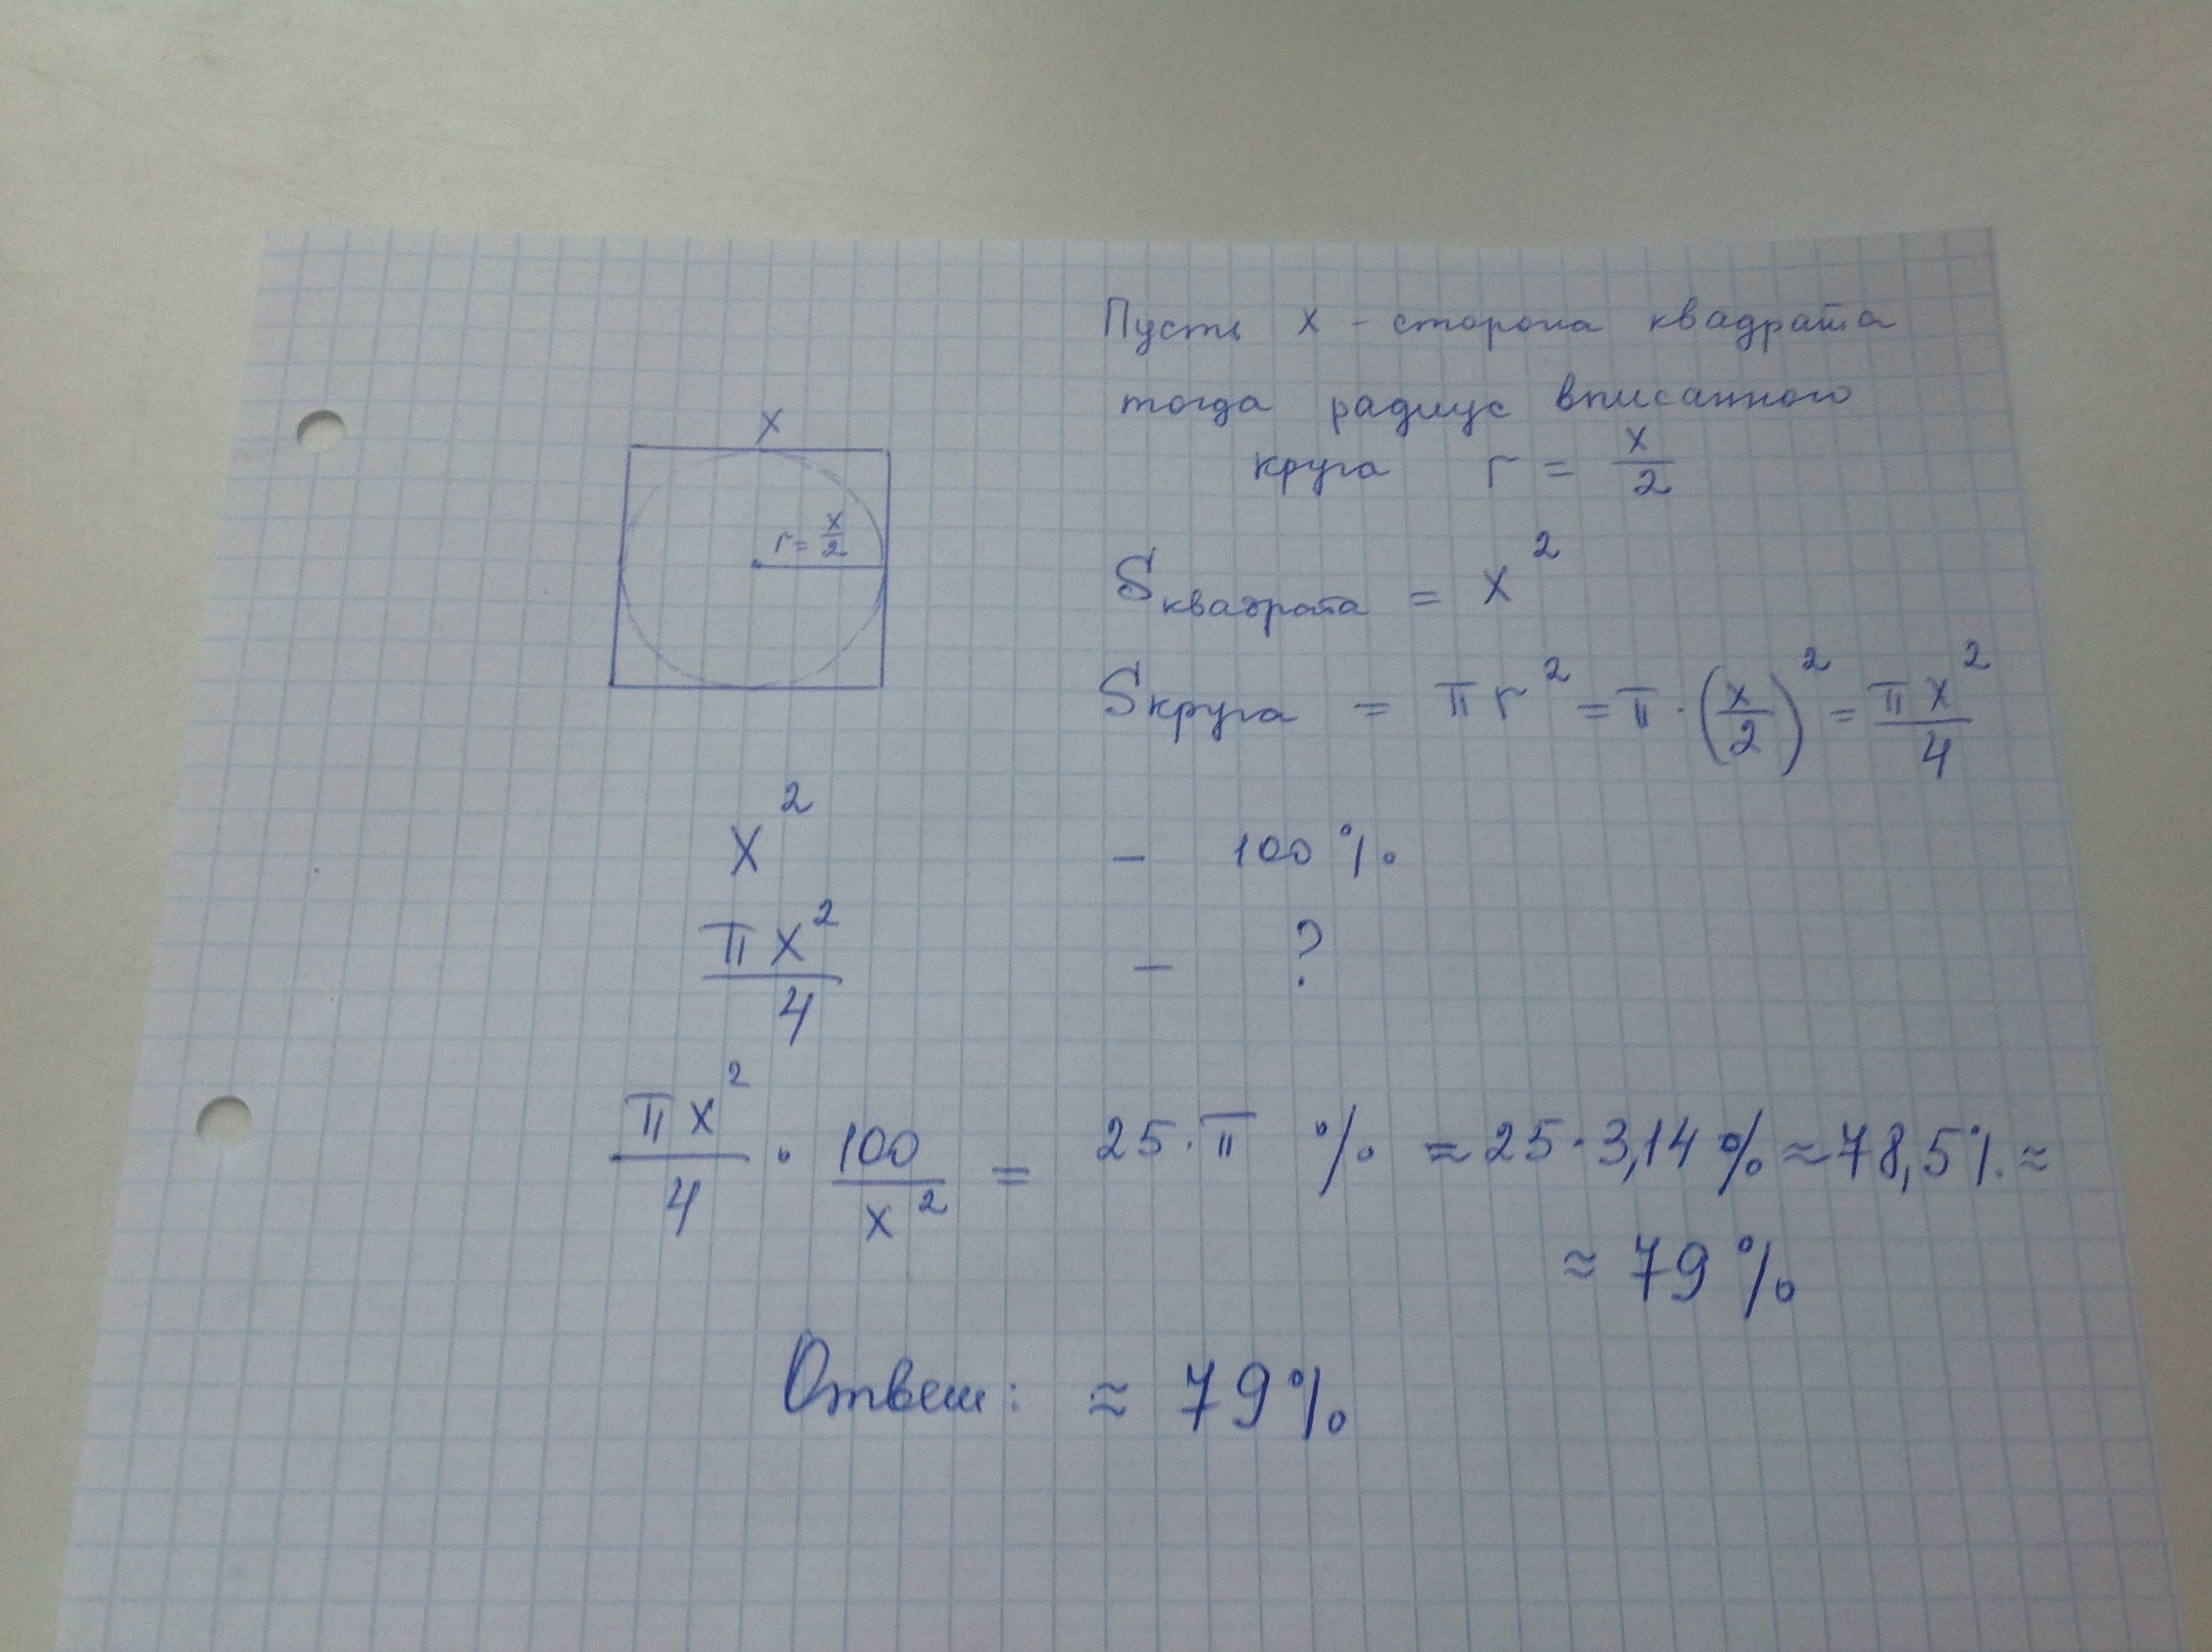 Пусть x - сторона квадрата
тогда радиус вписанного
круга r = x/2
x
r = x/2
S квадрата = x²
S круга = πr² = π · (x/2)² = πx²/4
x² - 100%
πx²/4 - ?
πx²/4 · 100/x² = 25 · π % ≈ 25 · 3,14 % ≈ 78,5% ≈
≈ 79%
Ответ: ≈ 79%